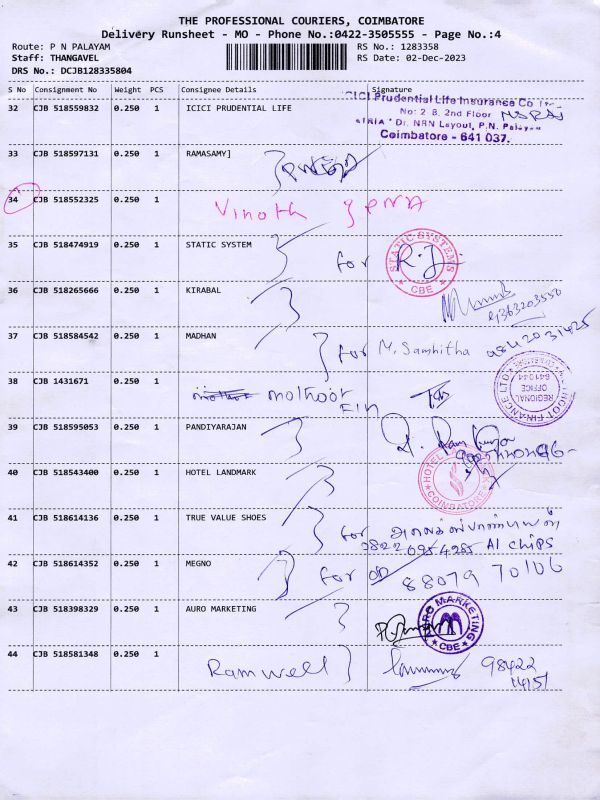 THE PROFESSIONAL COURIERS, COIMBATORE
Delivery Runsheet - MO - Phone No.:0422-3505555 - Page No.:4
Route: P N PALAYAM RS No.: 1283358
Staff: THANGAVEL RS Date: 02-Dec-2023
DRS No.: DCJB128335804
S No Consignment No Weight PCS Consignee Details Signature
32 CJB 518559832 0.250 1 ICICI PRUDENTIAL LIFE
ICICI Prudential Life Insurance Co
No: 2 B, 2nd Floor
"TRIA" Dr. NRN Layout, P.N. Palayam
Coimbatore - 641 037.
33 CJB 518597131 0.250 1 RAMASAMY]
34 CJB 518552325 0.250 1 Vinoth
35 CJB 518474919 0.250 1 STATIC SYSTEM for
STATIC SYSTEMS
* CBE *
36 CJB 518265666 0.250 1 KIRABAL
37 CJB 518584542 0.250 1 MADHAN for M. Sambitha
38 CJB 1431671 0.250 1 mothoot FIN
REGIONAL OFFICE
39 CJB 518595053 0.250 1 PANDIYARAJAN
40 CJB 518543400 0.250 1 HOTEL LANDMARK
HOTEL
COIMBATORE
41 CJB 518614136 0.250 1 TRUE VALUE SHOES for
AI CHIPS
42 CJB 518614352 0.250 1 MEGNO for 88079 70106
43 CJB 518398329 0.250 1 AURO MARKETING
AURO MARKETING
* CBE *
44 CJB 518581348 0.250 1 Ramwell 98422
14151